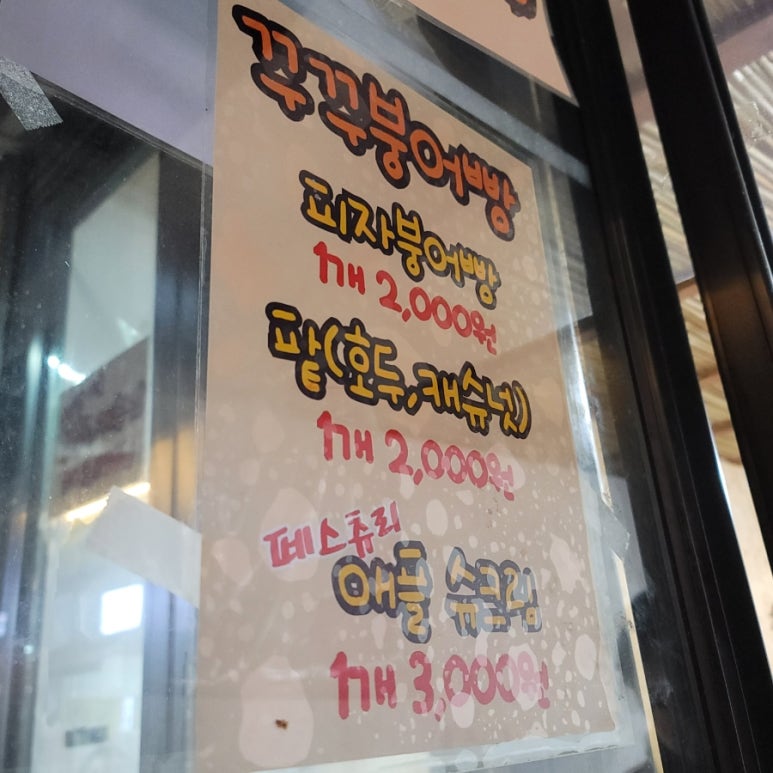 꾸꾸붕어빵
피자붕어빵
1개 2,000원
팥(호두,캐슈넛)
1개 2,000원
페스츄리
애플 슈크림
1개 3,000원